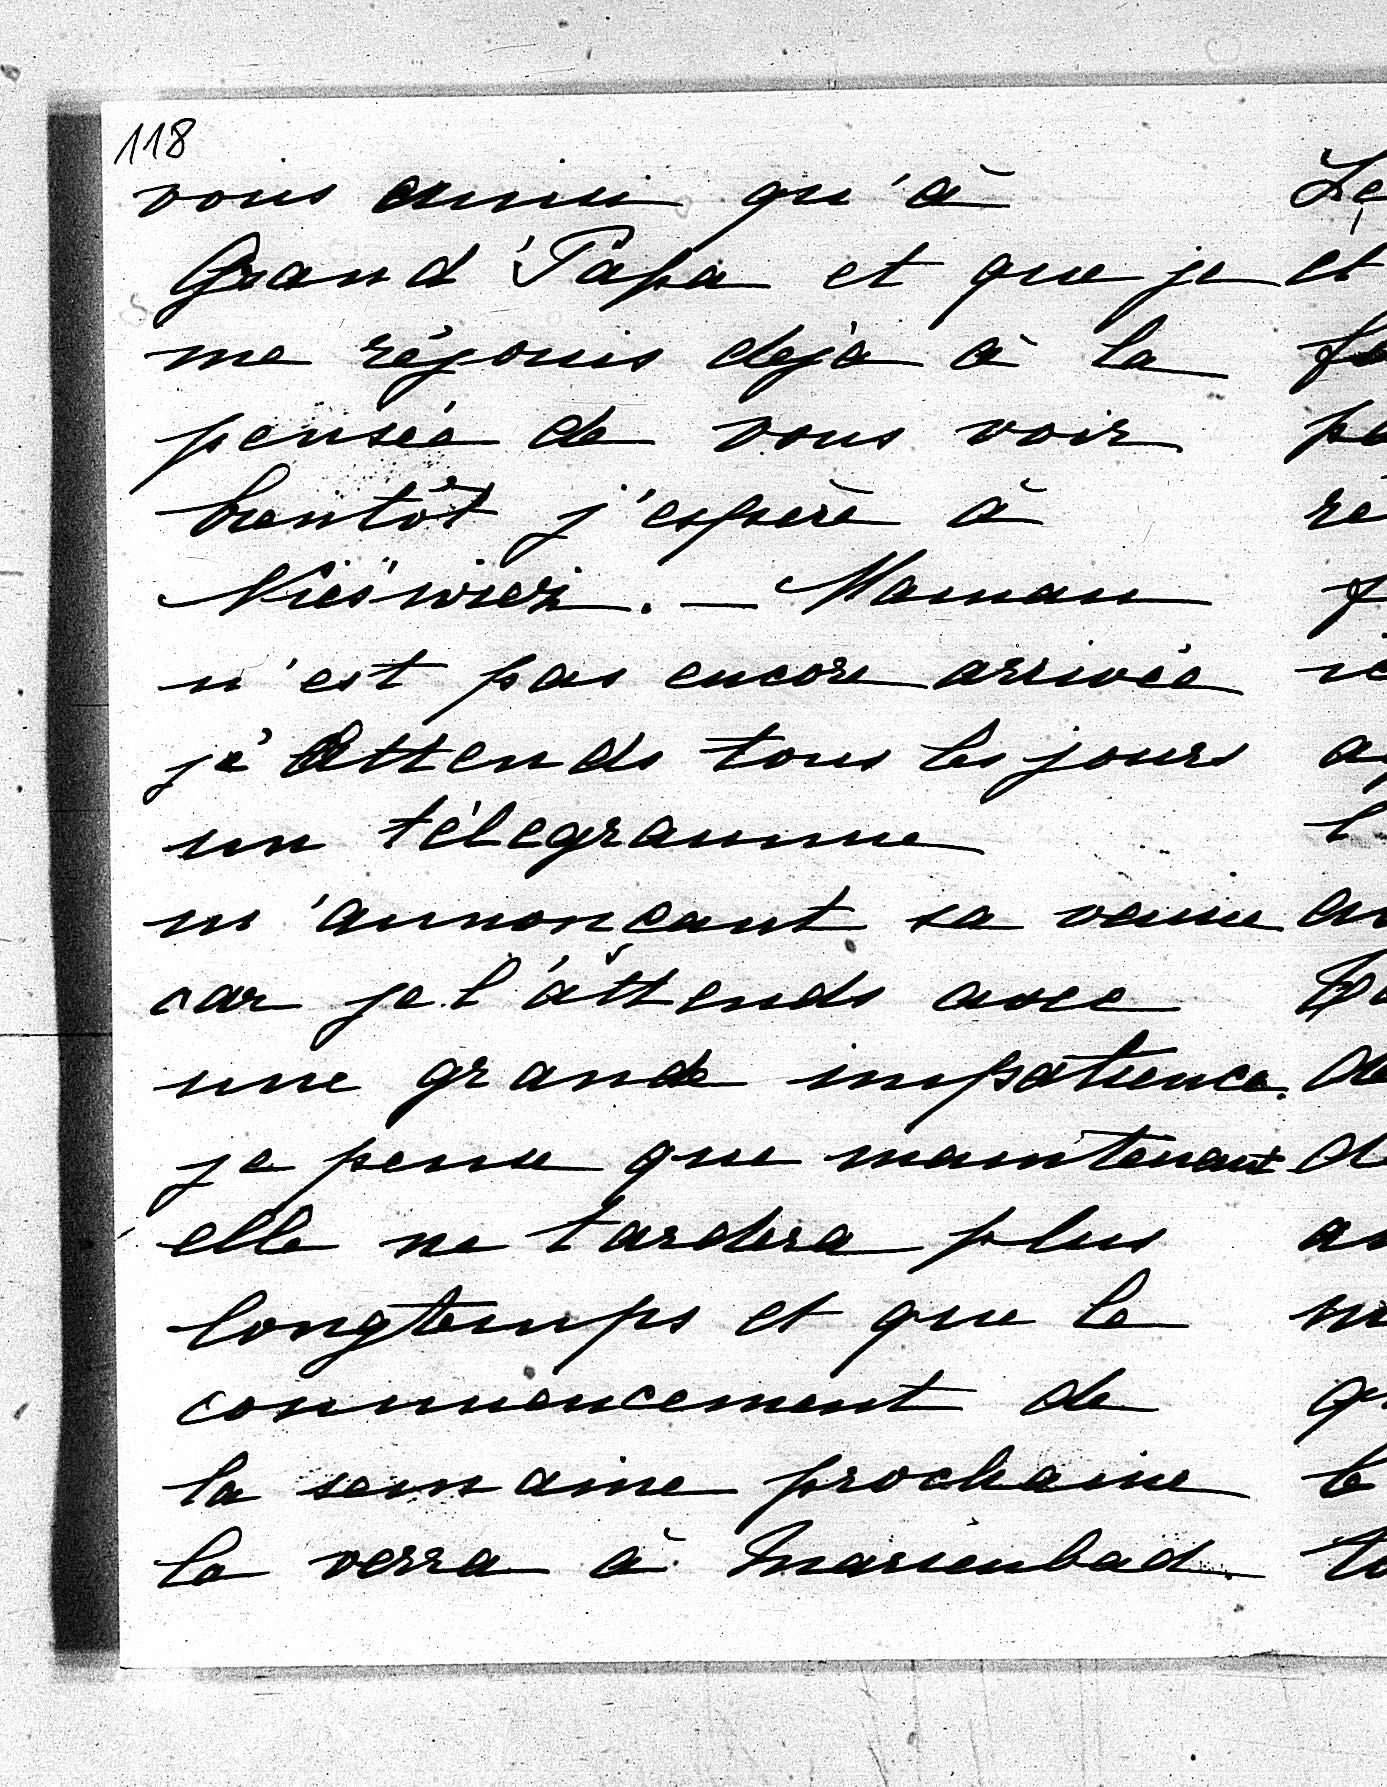 118
vous ainsi qu'à
Grand'Papa et que je
me réjouis dejà à la
pensée de vous voir
bientôt j'espère à
Nieświez. — Maman
n'est pas encore arrivée
j'attends tous les jours
un télegramme
m'annoncant sa venue
car je l'attends avec
une grande impatience.
je pense que maintenant
elle ne tardera plus
longtemps et que le
commencement de
la semaine prochaine
la verra à Marienbad.